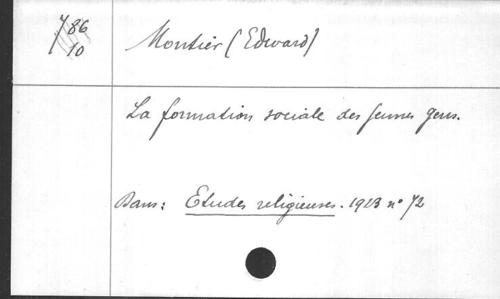 786
10
Montier (Edward)
La formation sociale des jeunes gens.
Dans: Etudes religieuses. 1923 n° 72